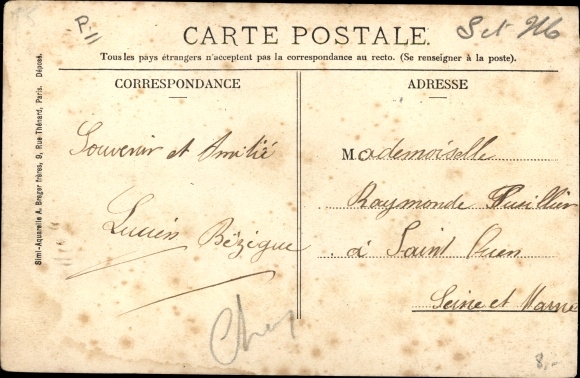 P. 11
CARTE POSTALE.
Tous les pays étrangers n'acceptent pas la correspondance au recto. (Se renseigner à la poste).
CORRESPONDANCE
Souvenir et Amitié
Lucien Bézègue
ADRESSE
Mademoiselle
Raymonde
à Saint Ouen
Seine et Marne
8.-
Simi-Aquarelle A. Breger frères, 9, Rue Thénard, Paris. Déposé.